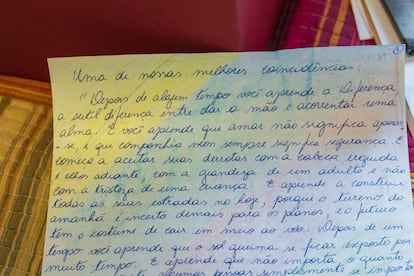 1
Uma de nossas melhores coincidências:
"Depois de algum tempo você aprende a diferença,
a sutil diferença entre dar a mão e acorrentar uma
alma. E você aprende que amar não significa apoiar-
-se, e que companhia nem sempre significa segurança. E
começa a aceitar suas derrotas com a cabeça erguida
e olhos adiante, com a grandeza de um adulto e não
com a tristeza de uma criança. E aprende a construir
todas as suas estradas no hoje, porque o terreno do
amanhã é incerto demais para os planos, e o futuro
tem o costume de cair em meio ao vão. Depois de um
tempo você aprende que o sol queima se ficar exposto por
muito tempo. E aprende que não importa o quanto
algumas pessoas simplesmente se impor